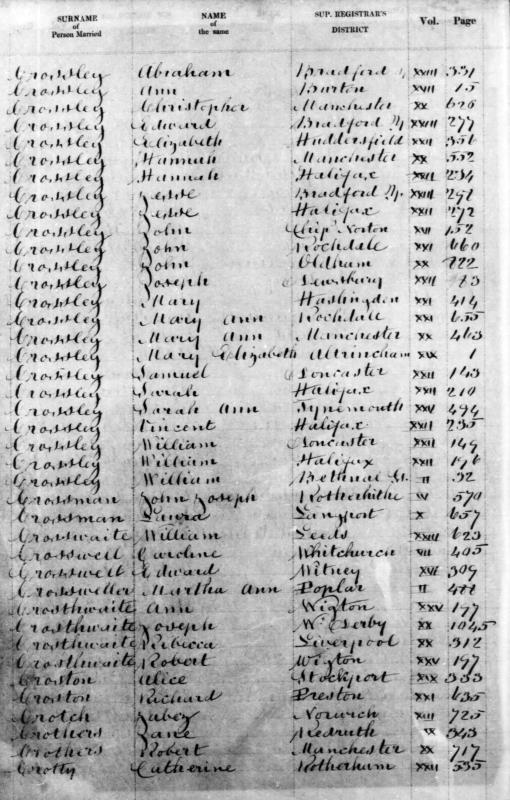 SURNAME of Person Married NAME of the same SUP. REGISTRAR'S DISTRICT Vol. Page
Crossley Abraham Bradford Y. XXIII 331
Crossley Ann Burton XVII 15
Crossley Christopher Manchester XX 626
Crossley Edward Bradford Y. XXIII 277
Crossley Elizabeth Huddersfield XXII 356
Crossley Hannah Manchester XX 552
Crossley Hannah Halifax XXII 234
Crossley Jesse Bradford Y. XXIII 292
Crossley Jesse Halifax XXII 272
Crossley John Chip. Norton XVI 152
Crossley John Rochdale XXI 660
Crossley John Oldham XX 722
Crossley Joseph Dewsbury XXII 73
Crossley Mary Haslingden XXI 414
Crossley Mary Ann Rochdale XXI 655
Crossley Mary Ann Manchester XX 463
Crossley Mary Elizabeth Altrincham XIX 1
Crossley Samuel Doncaster XXII 143
Crossley Sarah Halifax XXII 210
Crossley Sarah Ann Tynemouth XXV 494
Crossley Vincent Halifax XXII 235
Crossley William Doncaster XXII 149
Crossley William Halifax XXII 196
Crossley William Bethnal Gr. II 32
Crossman John Joseph Rotherhithe IV 570
Crossman Laura Langport X 657
Crosswaite William Leeds XXIII 623
Crosswell Caroline Whitchurch VII 405
Crosswell Edward Witney XVI 309
Crossweller Martha Ann Poplar II 471
Crosthwaite Ann Wigton XXV 197
Crosthwaite Joseph W. Derby XX 1045
Crosthwaite Rebecca Liverpool XX 312
Crosthwaite Robert Wigton XXV 197
Croston Alice Stockport XIX 333
Croston Richard Preston XXI 635
Crotch Jabez Norwich XIII 725
Crothers Jane Redruth IX 343
Crothers Robert Manchester XX 717
Crotty Catherine Rotherham XXII 535